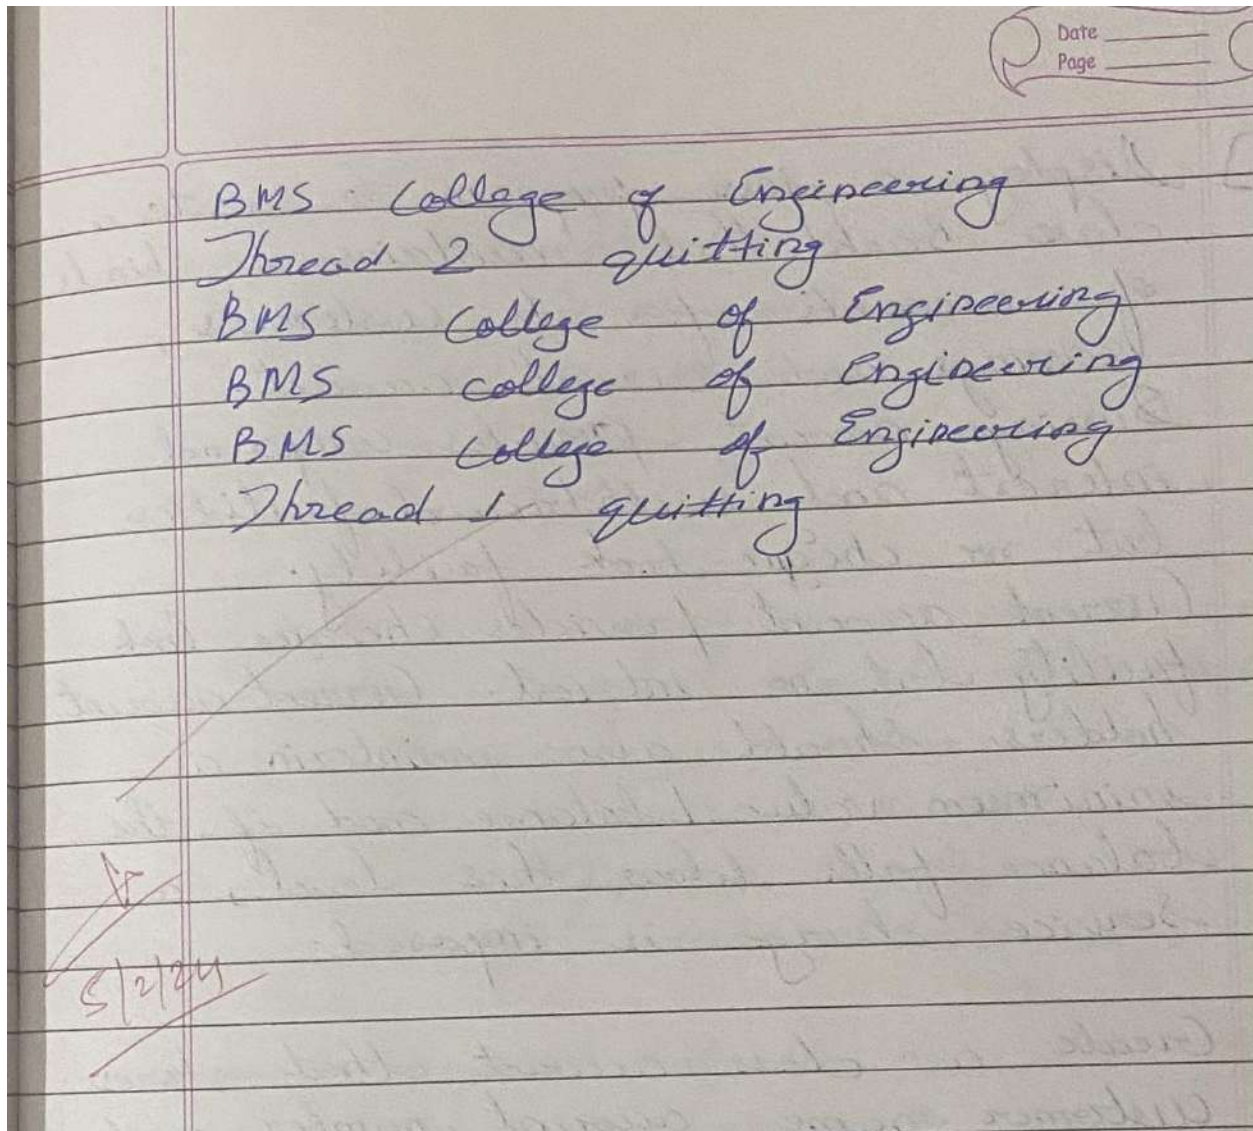 Date
Page
BMS College of Engineering
Thread 2 quitting
BMS College of Engineering
BMS college of Engineering
BMS College of Engineering
Thread 1 quitting
5/2/24